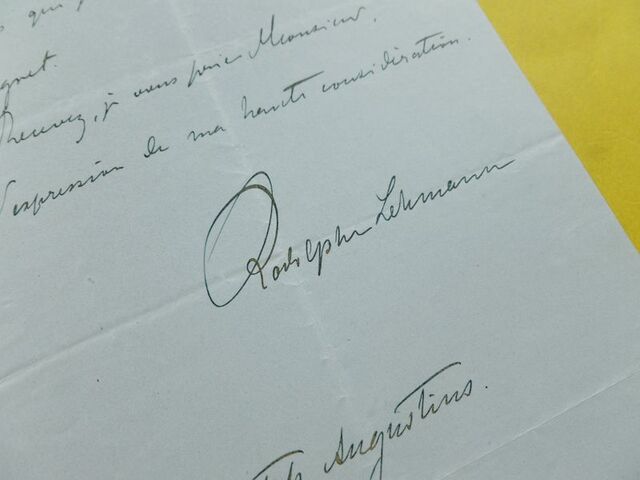 qui
Recevez, je vous prie Monsieur,
l'expression de ma haute considération.
Rodolphe Lehmann
Augustins.